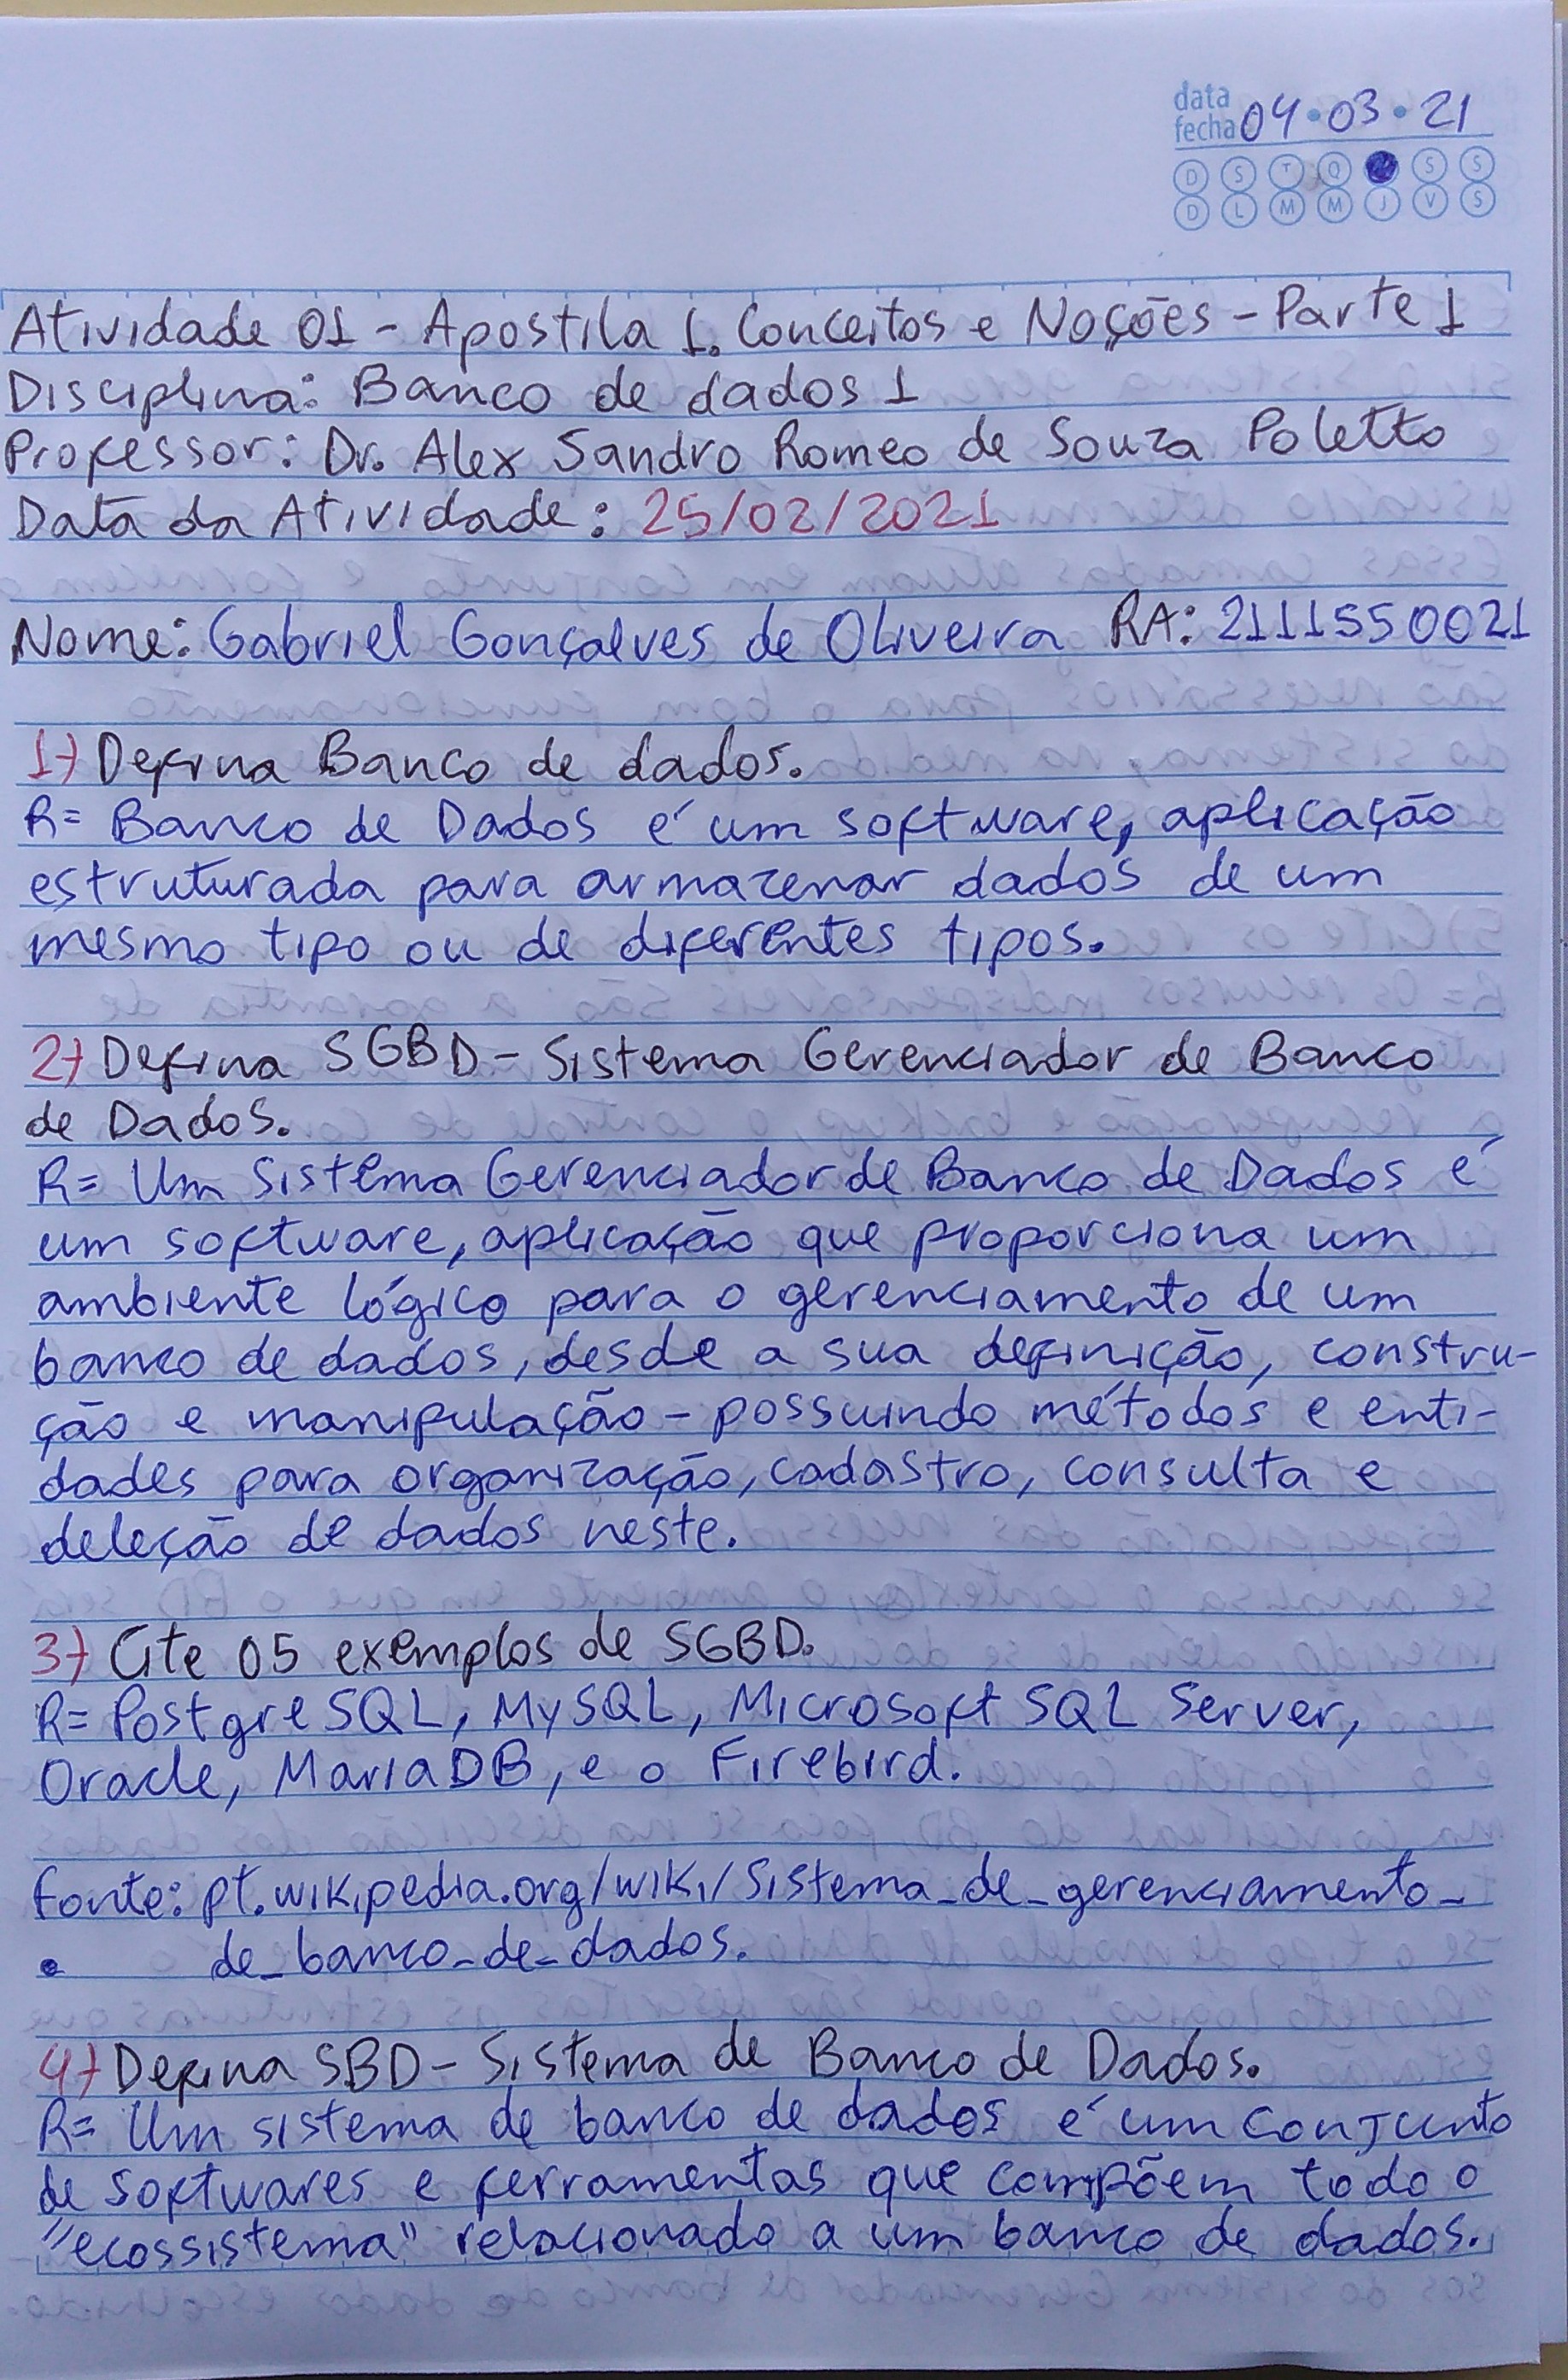 data
fecha 04·03·21
D S T Q S S
D L M M J V S
Atividade 01 - Apostila 1. Conceitos e Noções - Parte 1
Disciplina: Banco de dados 1
Professor: Dr. Alex Sandro Romeo de Souza Poletto
Data da Atividade: 25/02/2021
Nome: Gabriel Gonçalves de Oliveira RA: 2111550021
1) Defina Banco de dados.
R= Banco de Dados é um software, aplicação
estruturada para armazenar dados de um
mesmo tipo ou de diferentes tipos.
2) Defina SGBD - Sistema Gerenciador de Banco
de Dados.
R= Um Sistema Gerenciador de Banco de Dados é
um software, aplicação que proporciona um
ambiente lógico para o gerenciamento de um
banco de dados, desde a sua definição, constru-
ção e manipulação - possuindo métodos e enti-
dades para organização, cadastro, consulta e
deleção de dados neste.
3) Cite 05 exemplos de SGBD.
R= PostgreSQL, MySQL, Microsoft SQL Server,
Oracle, MariaDB, e o Firebird.
Fonte: pt.wikipedia.org/wiki/Sistema_de_gerenciamento_
de_banco_de_dados.
4) Defina SBD - Sistema de Banco de Dados.
R= Um sistema de banco de dados é um conjunto
de softwares e ferramentas que compõem todo o
"ecossistema" relacionado a um banco de dados.